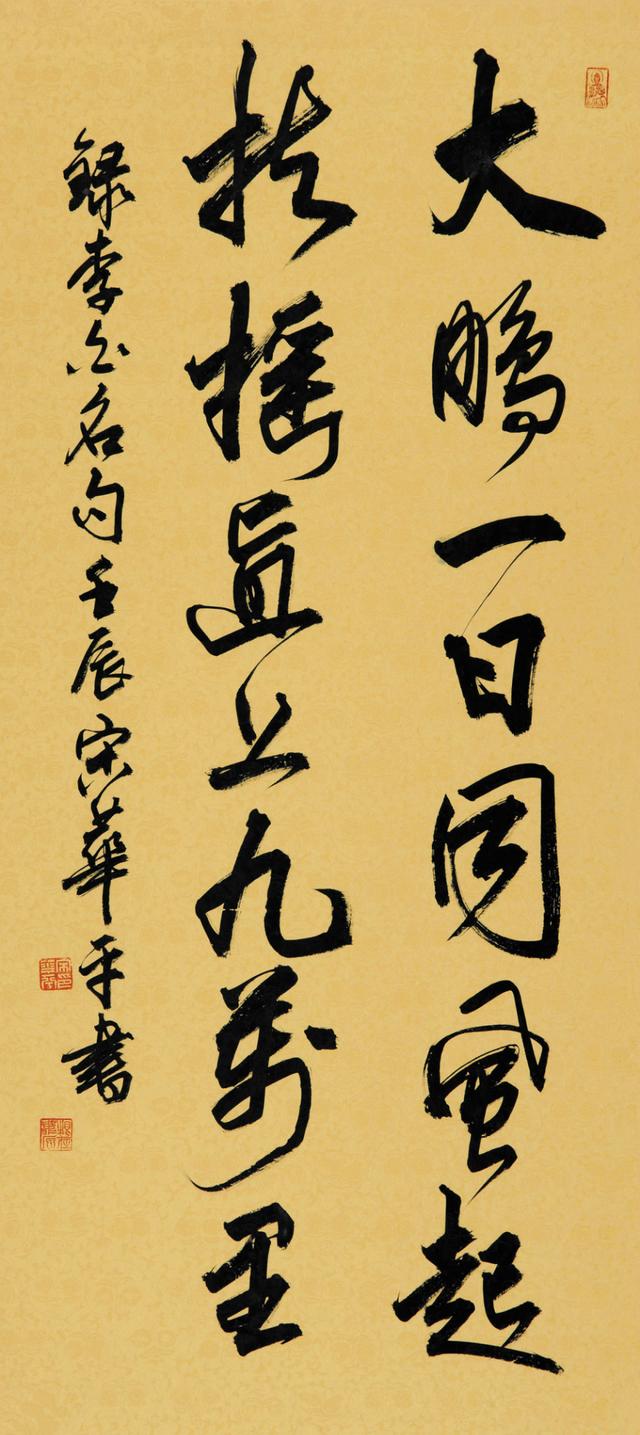 大鹏一日同風起
扶摇直上九萬里
録李白名句壬辰宋華平書